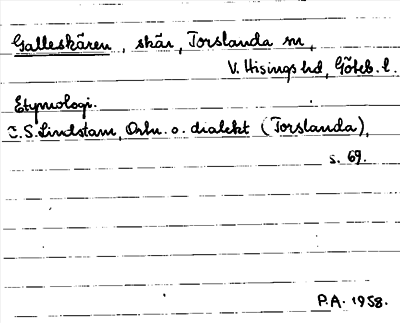 Galleskären, skär, Torslanda sn,
V. Hisings hd, Göteb. l.
Etymologi.
C.S. Lindstam, Ortn. o. dialekt (Torslanda),
s. 69.
P.A. 1958.